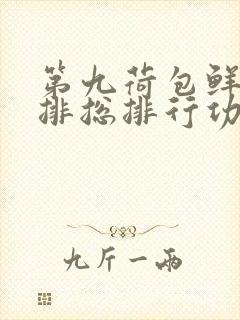 第九荷包鲜
排挖排行功
九斤一両